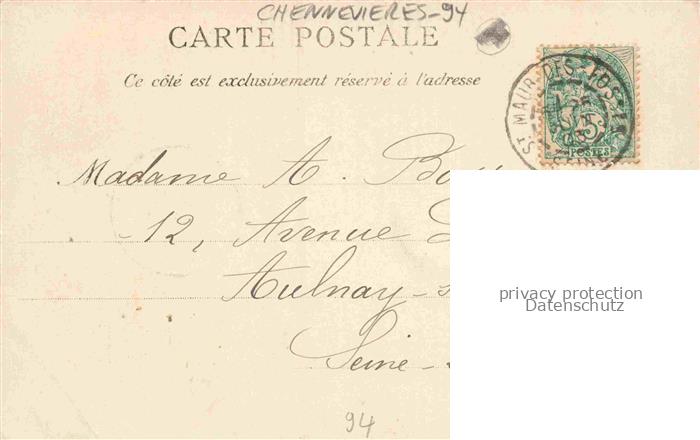 CHENNEVIERES-94
CARTE POSTALE
Ce côté est exclusivement réservé à l'adresse
ST MAUR-DES-FOS
SEINE
POSTES
Madame A.
12, Avenue
Aulnay-s
Seine-
privacy protection
Datenschutz
94